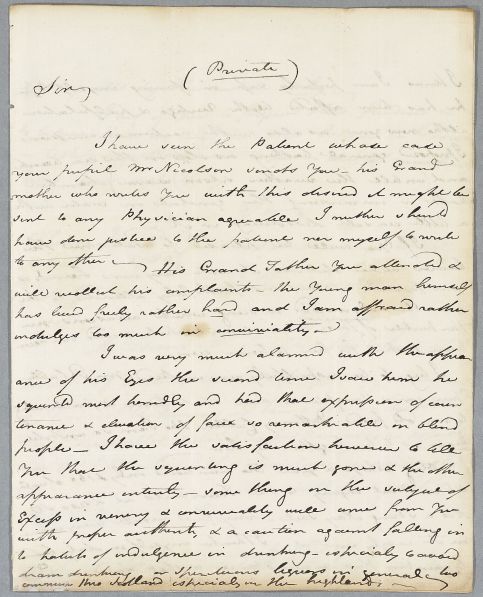 (Private)
Sir,
I have seen the Patient whose case
your pupil Mr Nicolson sends You - his Grand
mother who writes You with this desired it might be
sent to any Physician agreeable I neither should
have done justice to the patient nor myself to write
to any other - His Grand Father You attended &
will recollect his complaints - the Young man himself
has lived freely rather hard and I am affraid rather
indulges too much in conviviality -
I was very much alarmed with the appea
ance of his Eyes the second time I saw him he
squinted most horridly and had that expression of coun
tenance & elevation of face so remarkable in blind
people - I have the satisfaction however to tell
You that the squinting is much gone & the other
appearance entirely - some thing on the subject of
Excess in venery & conviviality will come from You
with proper authority, & a caution against falling in
to habits of indulgence in drinking - especially to avoid
dram drinking or spirituous liquors in general - too
common thro Scotland especially in the highlands -